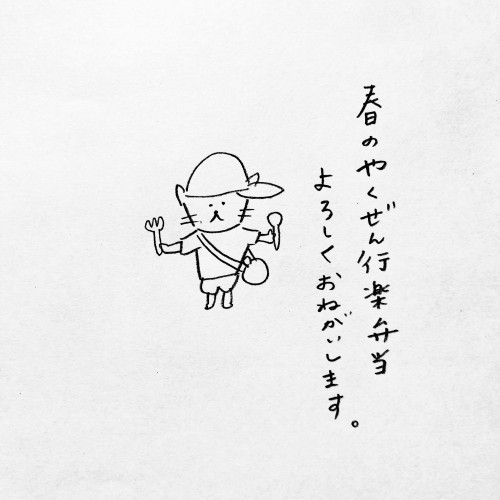 春のやくぜん行楽弁当
よろしくおねがいします。